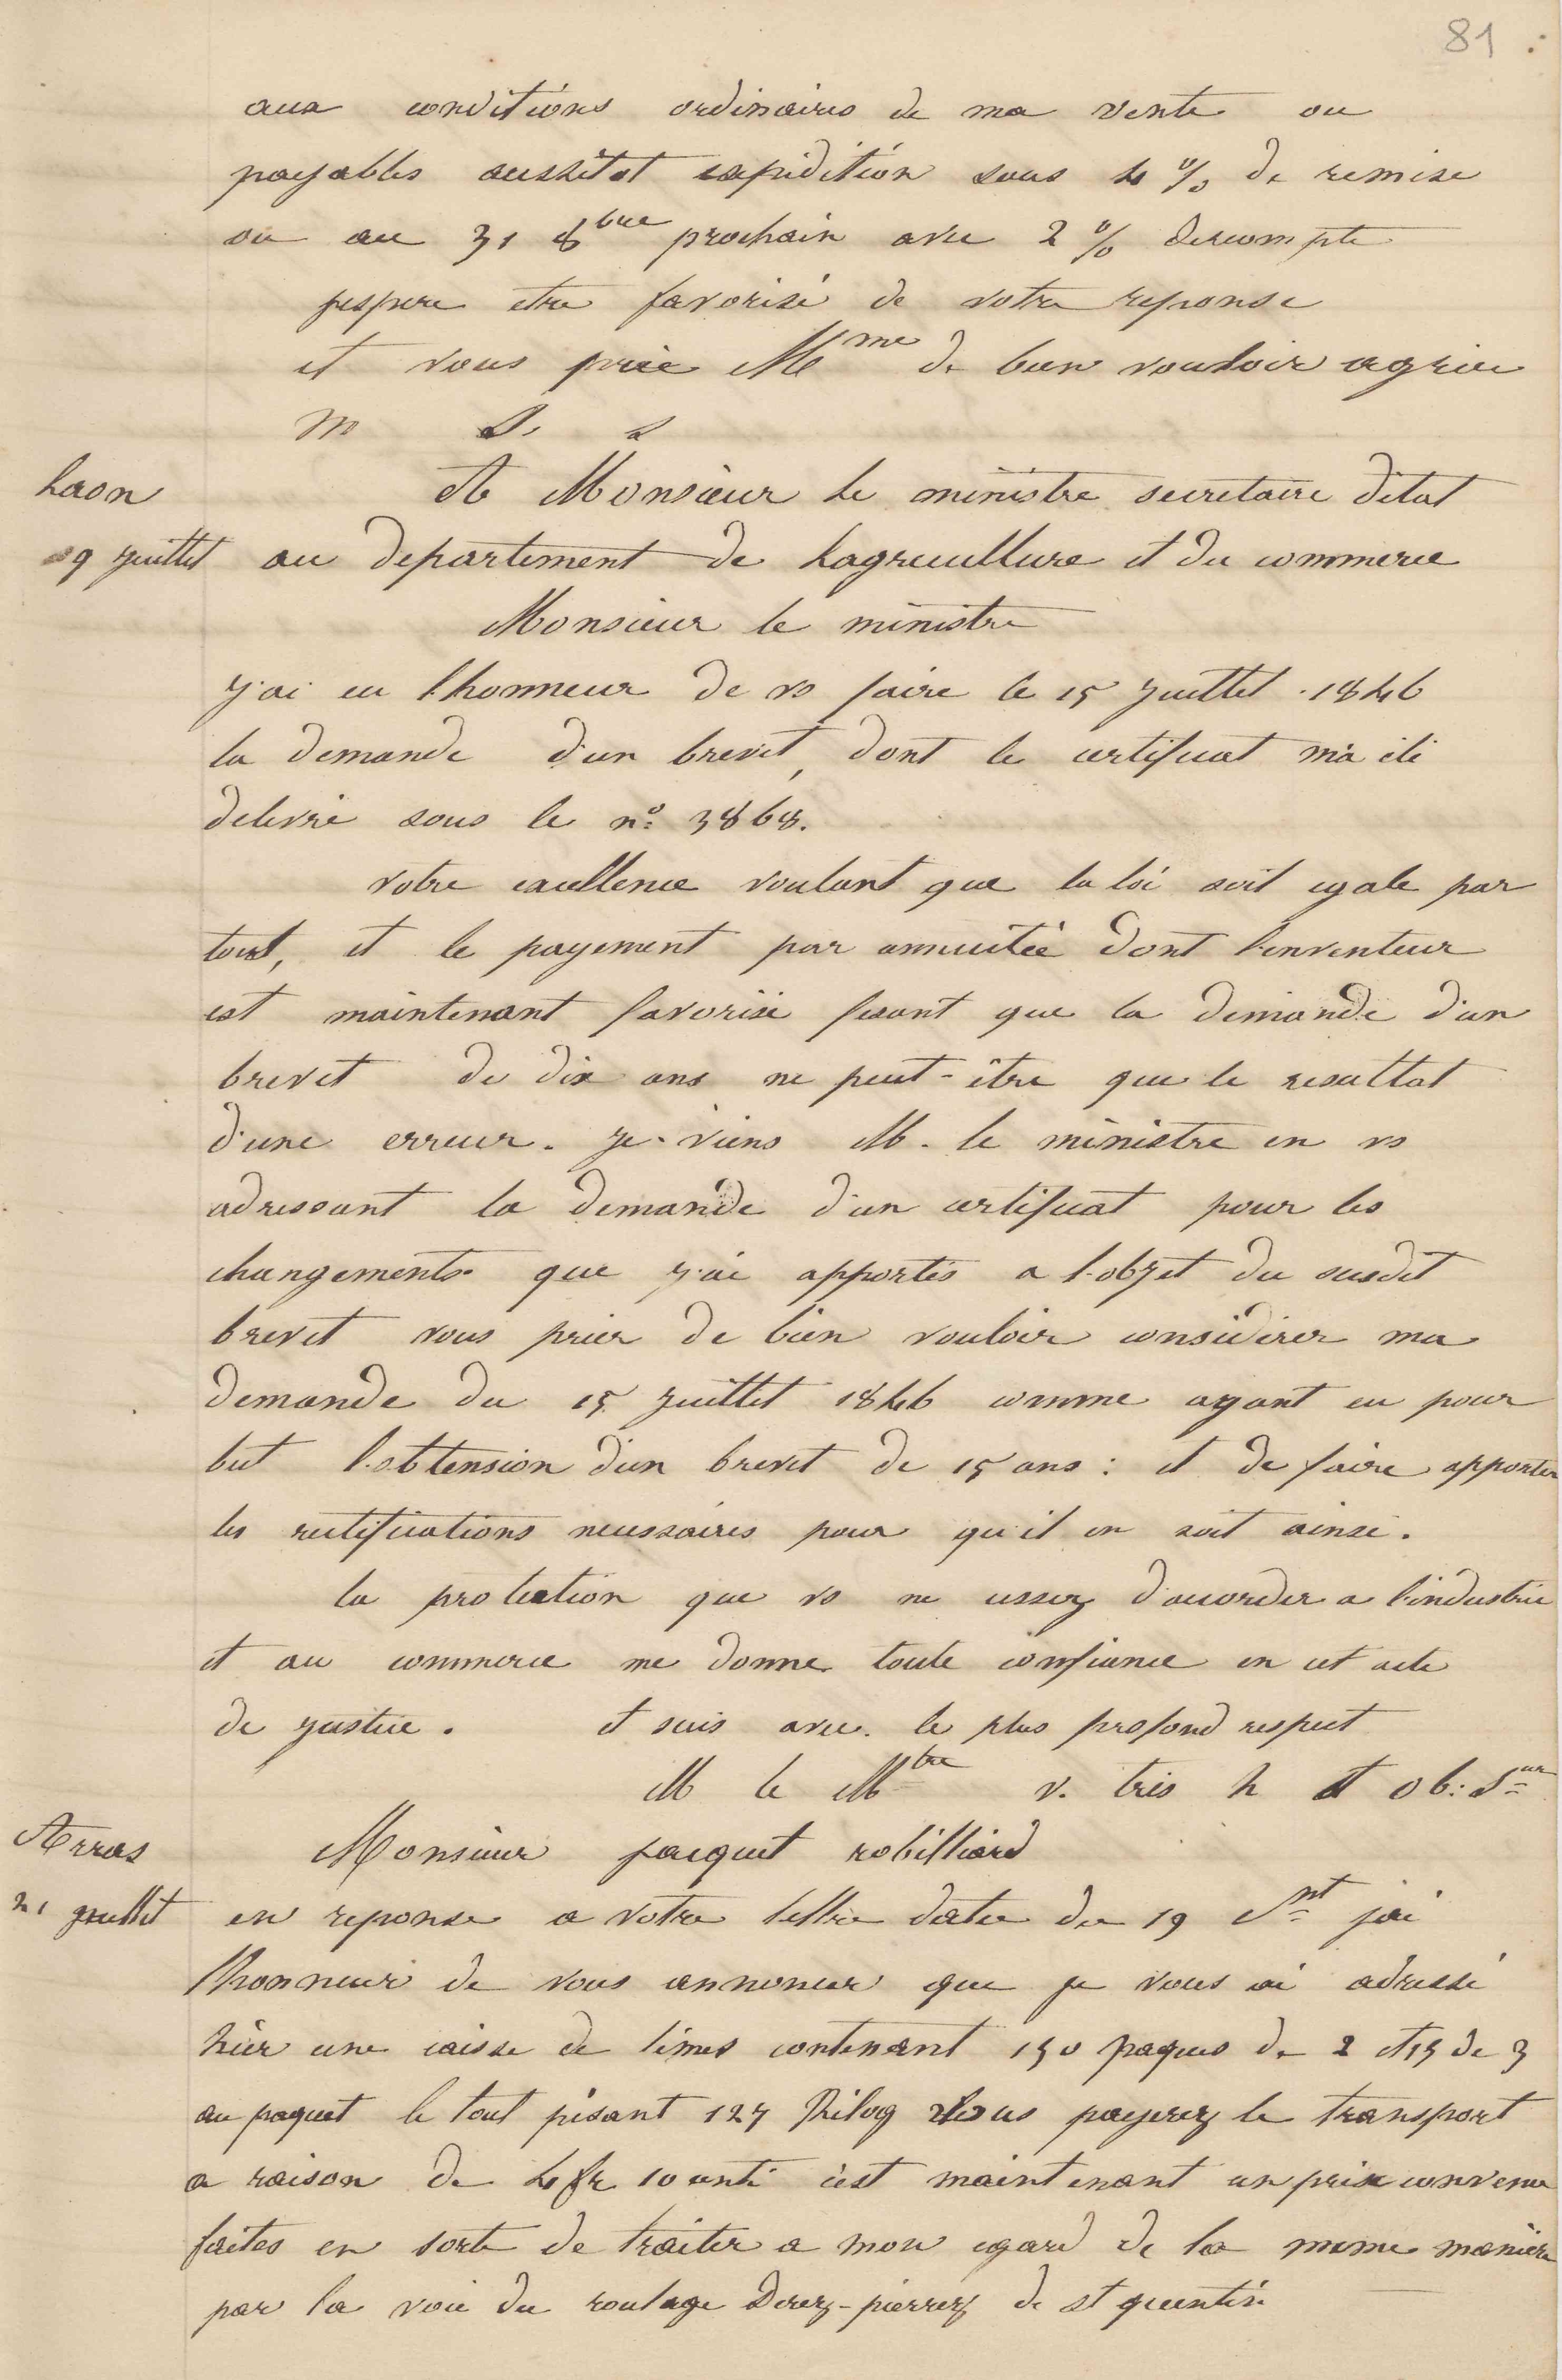 81
aux conditions ordinaires de ma vente ou
payables aussitot expidition sous 4 % de remise
ou au 31 8bre prochain avec 2 % descompte
jespere etre favorisé de votre reponse
et vous prie Mme de bien vouloir agrier
m S. s
Laon
A Monsieur le ministre secretaire d'etat
19 juillet
au departement de Lagriculture et du commerce
Monsieur le ministre
j'ai eu l'honneur de vs faire le 15 juillet 1846
la demande d'un brevet, dont le certificat m'a été
delivré sous le no 3868.
votre excellence voulant que la loi soit egale par
tout, et le payement par annuitée dont l'inventeur
est maintenant favorisé fesant que la demande d'un
brevet de dix ans ne peut-être que le resultat
d'une erreur. je viens M. le ministre en vs
adressant la demande d'un certificat pour les
changements que j'ai apportés a l'objet du susdit
brevet vous prier de bien vouloir considérer ma
demande du 15 juillet 1846 comme ayant eu pour
but l'obtension d'un brevet de 15 ans : et de faire apporter
les rectifications necessaires pour qu'il en soit ainsi.
la protection que vs ne cessez d'accorder a l'industrie
et au commerce me donne toute confiance en cet acte
de justice. et suis avec le plus profond respect
M le Mtre v. tres h et ob: Sur
Arras
Monsieur pacquet robilliard
21 juillet
en reponse a votre lettre datee du 19 Ct j'ai
lhonneur de vous annoncer que je vous ai adressé
hier une caisse de limes contenant 150 paques de 2 et 15 de 3
au paquet le tout pésant 127 Kilog vous payerez le transport
a raison de 4 fr 10 cent c'est maintenant un prix convenu
faites en sorte de traiter a mon egard de la meme maniere
par la voie du roulage Derez-pierrez de st quentin